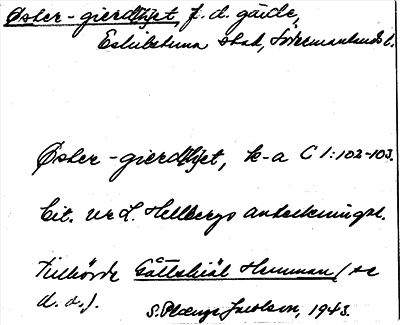 Öster-gierdhjet, f. d. gärde,
Eskilstuna stad, Södermanlands l.
Öster-gierdhjet, k-a C 1:102-103.
Cit. ur L. Hellbergs anteckningar.
Tillhörde Hemman (se
d. o.).
S. Jacobson, 1943.